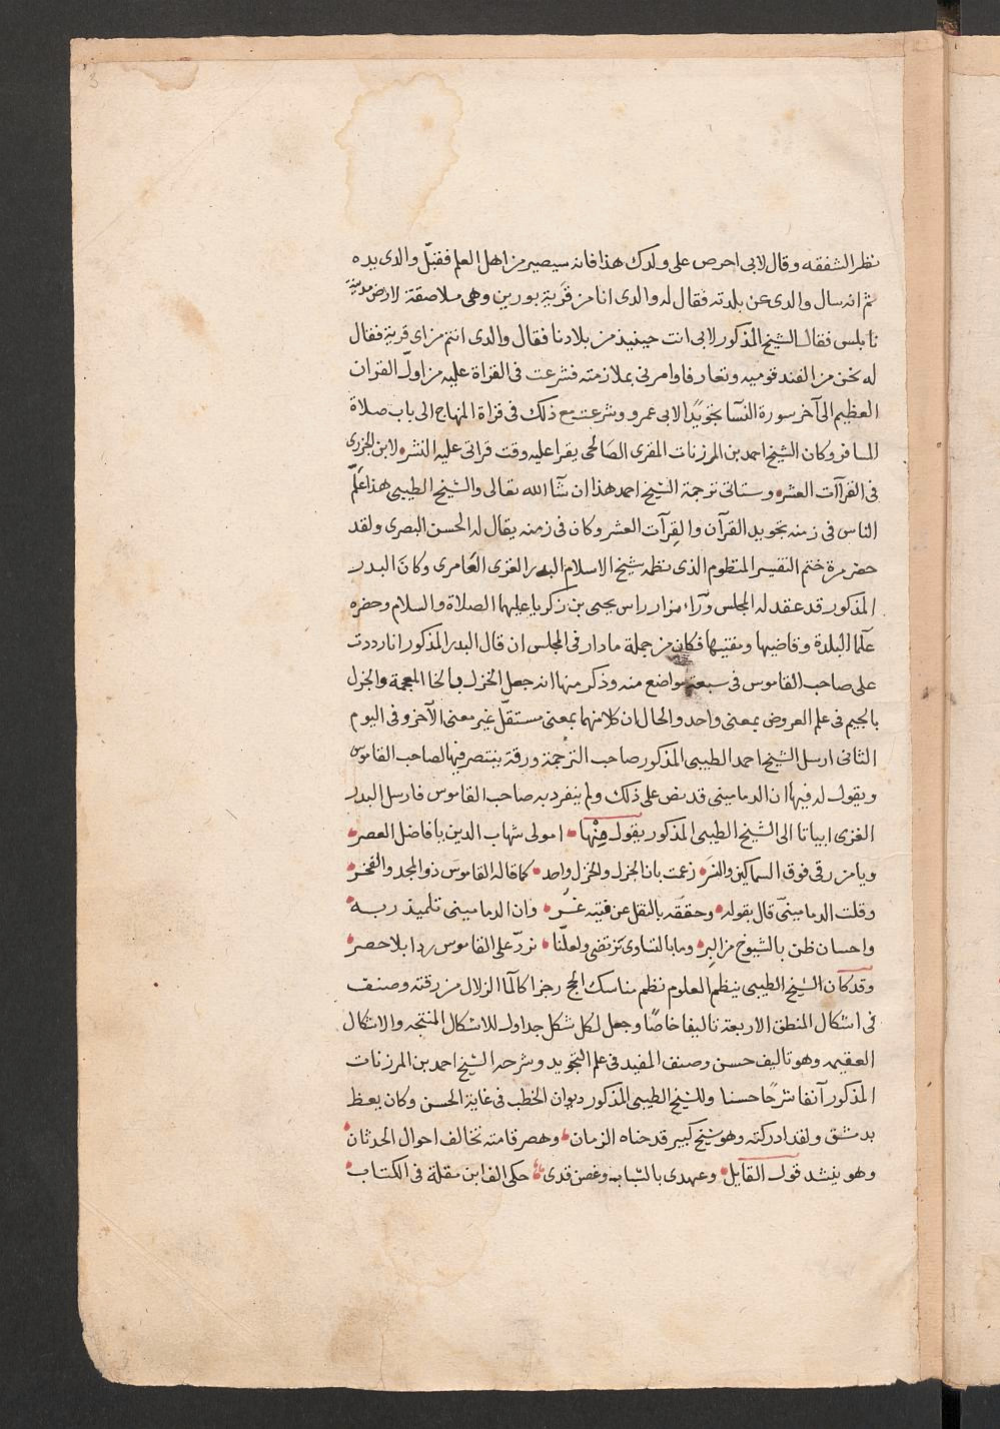 3
نظر الشفقه وقال لابى احرص على ولدك هذا فانه سيصير من اهل العلم فقبّل والدى يده
ثم انه سال والدى عن بلدته فقال له والدى انا من قرية بورين وهى ملاصقة لارض مدينة
نابلس فقال الشيخ المذكور لابى انت حينيذ من بلادنا فقال والدى انتم من اى قرية فقال
له نحن من الفندقوميه وتعارفا وامرنى بملازمته فشرعت فى القراة عليه من اول القران
العظيم الى آخر سورة النسآ تجويدًا لابى عمرو وشرعت مع ذلك فى قراة المنهاج الى باب صلاة
المسافر وكان الشيخ احمد بن المرزنات المقرى الصالحى يقرا عليه وقت قراتى عليه النشر لابن الجزرى
فى القراآت العشر وستاتى ترجمة الشيخ احمد هذا ان شآ الله تعالى والشيخ الطيبى هذا علّم
الناس فى زمنه تجويد القرآن والقرآت العشر وكان فى زمنه يقال له الحسن البصرى ولقد
حضر مرة ختم التفسير المنظوم الذى نظمه شيخ الاسلام البدر الغزى العامرى وكان البدر
المذكور قد عقد له المجلس ورآء مزار راس يحيى بن زكريا عليهما الصلاة والسلام وحضره
علما البلدة وقاضيها ومفتيها فكان من جملة ما دار فى المجلس ان قال البدر المذكور انا رددت
على صاحب القاموس فى سبعة مواضع منه وذكر منها انه جعل الخزل بالخا المعجمة والجزل
بالجيم فى علم العروض بمعنى واحد والحال ان كلا منهما بمعنى مستقلّ غير معنى الآخر وفى اليوم
الثانى ارسل الشيخ احمد الطيبى المذكور صاحب الترجمة ورقة ينتصر فيها لصاحب القاموس
ويقول له فيها ان الدمامينى قد نص على ذلك ولم ينفرد به صاحب القاموس فارسل البدر
الغزى ابياتا الى الشيخ الطيبى المذكور يقول مِنْها امولى شهاب الدين يا فاضل العصر
ويا من رقى فوق السماكين والنسر زعمت بان الجزل والخزل واحد كما قاله القاموس ذو المجد والفخر
وقلت الدمامينى قال بقوله وحققه بالنقل عن فتيه غُرّ وان الدمامينى تلميذ ربه
واحسان ظن بالشيوخ من البِر وما بالتساوى نرتضى ولعلّنا نردّ على القاموس ردا بلا حصر
وقد كان الشيخ الطيبى ينظم العلوم نظم مناسك الحج رجزا كالمآ الزلال من رقته وصنف
فى اشكال المنطق الاربعة تاليفا خاصًا وجعل لكل شكل جداول للاشكال المنتجه والاشكال
العقيمه وهو تاليف حسن وصنف المفيد فى علم التجويد وشرحه الشيخ احمد بن المرزنات
المذكور آنفا شرحًا حسنا وللشيخ الطيبى المذكور ديوان الخطب فى غاية الحسن وكان يعظ
بدمشق ولقد ادركته وهو شيخ كبير قد حناه الزمان وهصر قامته تخالف احوال الحدثان
وهو ينشد قول القايل وعهدى بالشباب وغصن قدى حكى الف ابن مقلة فى الكتاب